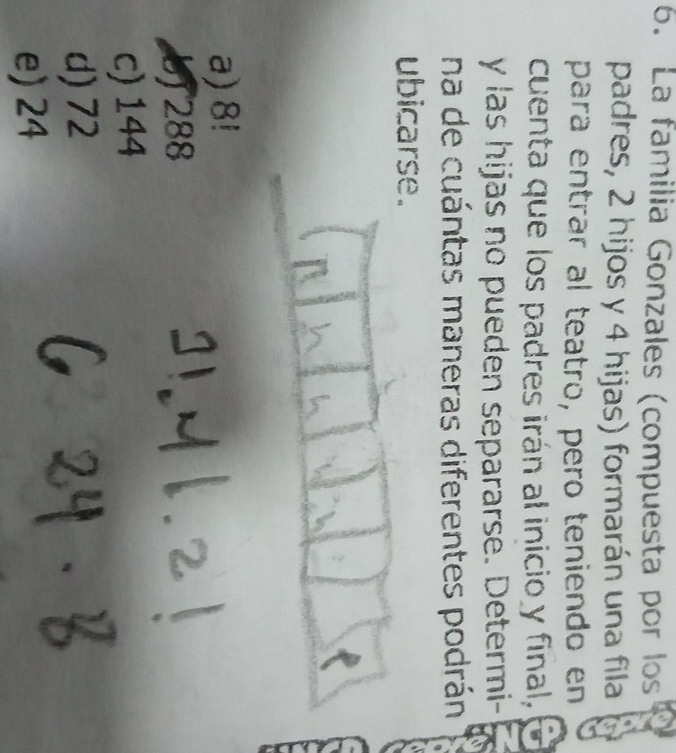 6. La familia Gonzales (compuesta por los
padres, 2 hijos y 4 hijas) formarán una fila
para entrar al teatro, pero teniendo en
cuenta que los padres irán al inicio y final,
y las hijas no pueden separarse. Determi-
na de cuántas maneras diferentes podrán
ubicarse.
a) 8!
b) 288
c) 144
d) 72
e) 24
3!.4!.2!
6 24 . 8